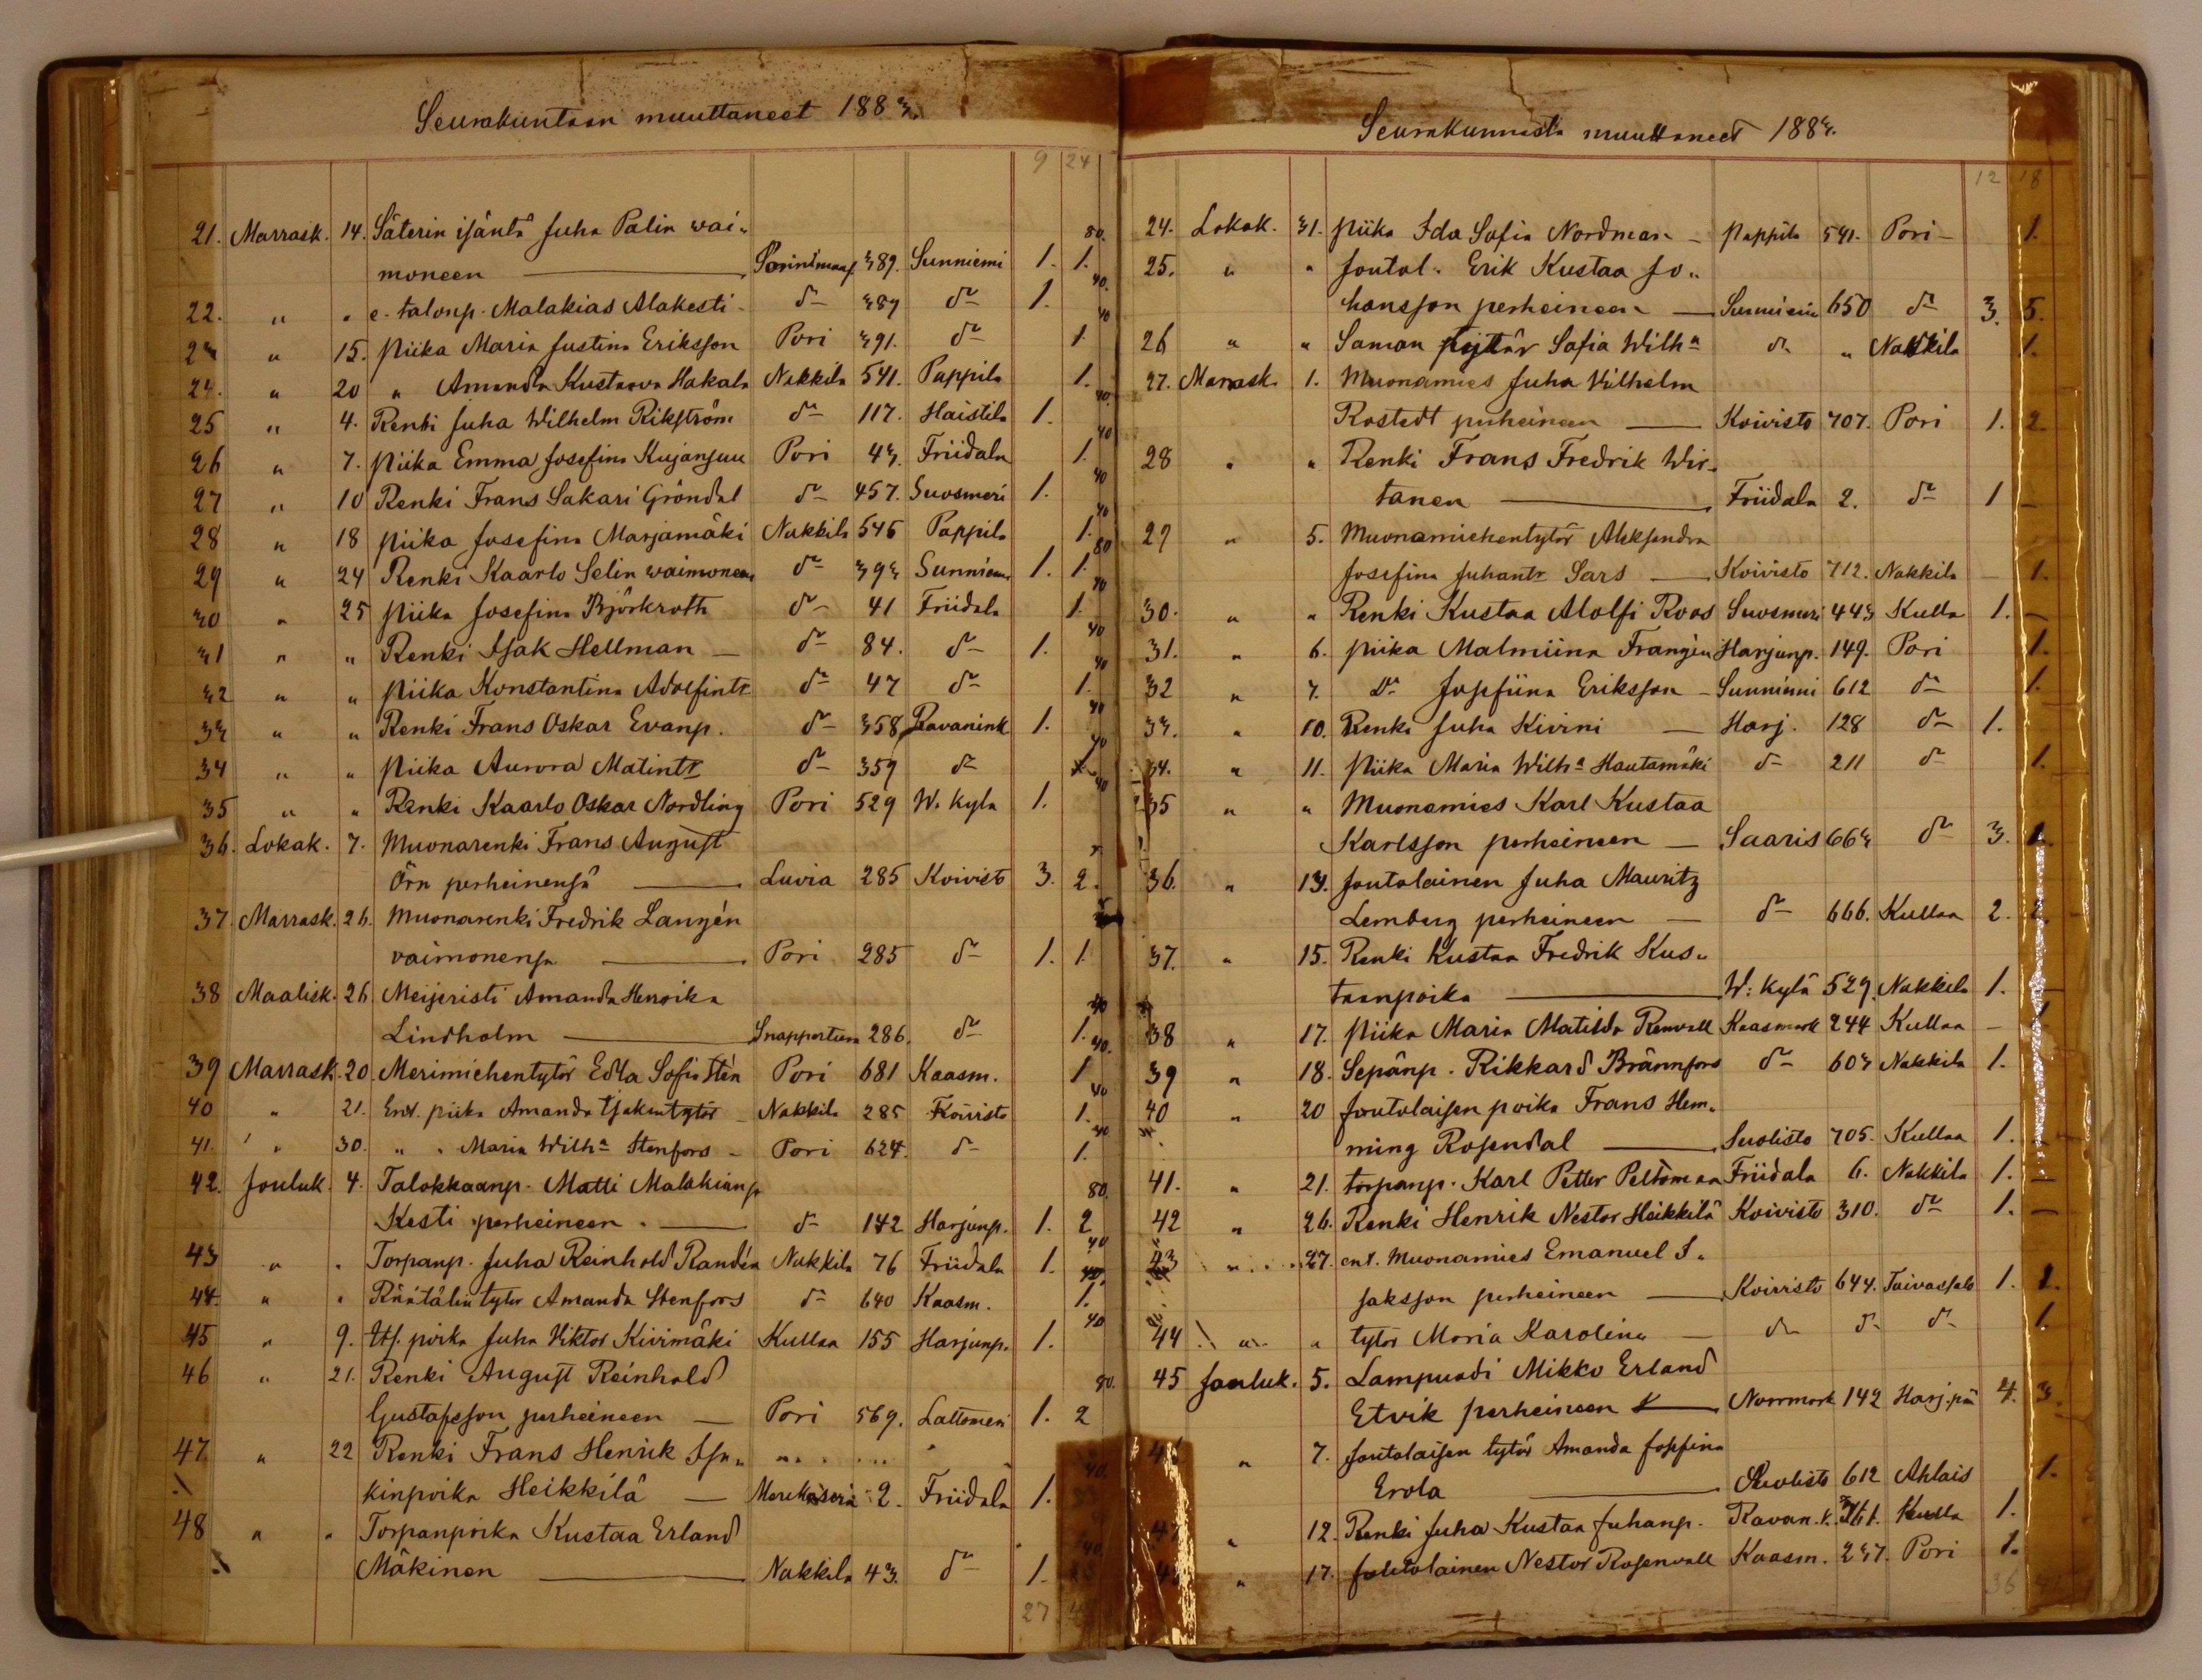 Seurakuntaan muuttaneet 1883.
9 24
21. Marrask. 14. Säterin isäntä Juha Palin wai„ 80.
moneen — Porinmaas. 389. Sunniemi 1. 1.
22. „ „ e. talonp. Malakias Alakesti - d:o 389 d:o 1. 40.
23 „ 15. piika Maria Justina Eriksson Pori 391. d:o 1. 40
24. „ 20 „ Amanda Kustaava Hakala Nakkila 541. Pappila 1.
25 „ 4. Renki Juha Wilhelm Rikström d:o 117. Haistila 1. 40.
26 „ 7. piika Emma Josefina Kujansuu Pori 43. Friidala 1. 40
27 „ 10 Renki Frans Sakari Gröndal d:o 457. Suosmeri 1. 40
28 „ 18 piika Josefina Marjamäki Nakkila 545 Pappila 1. 40
29 „ 24 Renki Kaarlo Selin waimoneen d:o 393 Sunniemi 1. 1. 80
30 „ 25 piika Josefina Björkroth d:o 41 Friidala 1. 40
31 „ „ Renki Isak Hellman — d:o 84. d:o 1. 40
32 „ „ piika Konstantina Adolfintr d:o 47 d:o 1. 40
33 „ „ Renki Frans Oskar Evanp. d:o 358 Ravanink 1. 40
34 „ „ piika Aurora Matintr d:o 359 d:o 1. 40
35 „ „ Renki Kaarlo Oskar Nordling Pori 529 W. kylä 1. 40
36. Lokak. 7. Muonarenki Frans August
Örn perheinensä — Luvia 285 Koivisto 3. 2.
37. Marrask. 26. Muonarenki Fredrik Langén
vaimonensa — Pori 285 d:o 1. 1.
38 Maalisk. 26 Meijeristi Amanda Henrika
Lindholm — Snappertuna 286. d:o 1. 40
39 Marrask. 20. Merimiehentytör Edla Sofia Stén Pori 681 Kaasm. 1 40.
40 „ 21. Ent. piika Amanda Isakintytör - Nakkila 285 Koivisto 1. 40
41. „ 30. „ „ Maria Wilh:a Stenfors - Pori 624. d:o 1. 40
42. Jouluk. 4. Talokkaanp. Matti Malakianp
Kesti perheineen. — d:o 142 Harjunp. 1. 2 80.
43 „ „ Torpanp. Juha Reinhold Randén Nakkila 76 Friidala 1. 40
44. „ „ Räätälin tytör Amanda Stenfors d:o 640 Kaasm. 1. 40.
45 „ 9. Itf. poika Juha Viktor Kivimäki Kullaa 155 Harjunp. 1. 40
46 „ 21. Renki August Reinhold
Gustafsson perheineen — Pori 569. Lattomeri 1. 2 80.
47 „ 22 Renki Frans Henrik Isa„
kinpoika Heikkilä — Merikarvia 2. Friidala 1. 40.
48 „ „ Torpanpoika Kustaa Erland
Mäkinen — Nakkila 43. d:o 1. 40
27
Seurakunnasta muuttaneet 1883.
12 18
24. Lokak. 31. piika Ida Sofia Nordman — Pappila 541. Pori — 1.
25. „ „ Joutol. Erik Kustaa Jo„
hansson perheineen — Sunniemi 650 d:o 3. 5.
26 „ „ Saman tytär Sofia Wilh:a d:o „ Nakkila 1.
27. Marrask. 1. Muonamies Juha Vilhelm
Rostedt perheineen — Koivisto 707. Pori 1. 2.
28 „ „ Renki Frans Fredrik Wir„
tanen — Friidala 2. d:o 1 —
29 „ 5. Muonamiehentytör Aleksandra
Josefina Juhantr Sars — Koivisto 712. Nakkila — 1.
30. „ „ Renki Kustaa Adolfi Roos Suosmeri 443 Kullaa 1. —
31. „ 6. piika Malmiina Franzén Harjunp. 149. Pori 1.
32 „ 7. D:o Josfiina Eriksson — Sunniemi 612 d:o 1.
33. „ 10. Renki Juha Kivini — Harj. 128 d:o 1.
34. „ 11. piika Maria Wilh:a Hautamäki d:o 211 d:o 1.
35 „ „ Muonamies Karl Kustaa
Karlsson perheineen — Saaris 663 d:o 3. 1.
36. „ 13. Joutolainen Juha Mauritz
Lemberg perheineen — d:o 666. Kullaa 2. 2.
37. „ 15. Renki Kustaa Fredrik Kus„
taanpoika — W: kylä 529. Nakkila 1. —
38 „ 17. piika Maria Matilda Renvall Kaasmark 244 Kullaa — 1
39 „ 18. Sepänp. Rikkard Brännfors d:o 603 Nakkila 1.
40 „ 20 Joutolaisen poika Frans Hem„
ming Rosendal — Suolisto 705. Kullaa 1. —
41. „ 21. torpanp. Karl Petter Peltomaa Friidala 6. Nakkila 1. —
42 „ 26. Renki Henrik Nestor Heikkilä Koivisto 310. d:o 1. —
43 „ 27. ent. Muonamies Emanuel I„
saksson perheineen — Koivisto 644. Taivassalo 1. 1.
44 „ „ tytör Maria Karolina — d:o d:o d:o 1.
45 Jouluk. 5. Lampuodi Mikko Erland
Etvik perheineen — Norrmark 142 Harj.pä 4. 3.
46 „ 7. Joutolaisen tytör Amanda Josfina
Erola — Suolisto 612 Ahlais 1.
47 „ 12. Renki Juha Kustaa Juhanp. Ravan.k. 361. Kulla 1.
48 „ 17. Joutolainen Nestor Rosenvall Kaasm. 237. Pori 1.
36